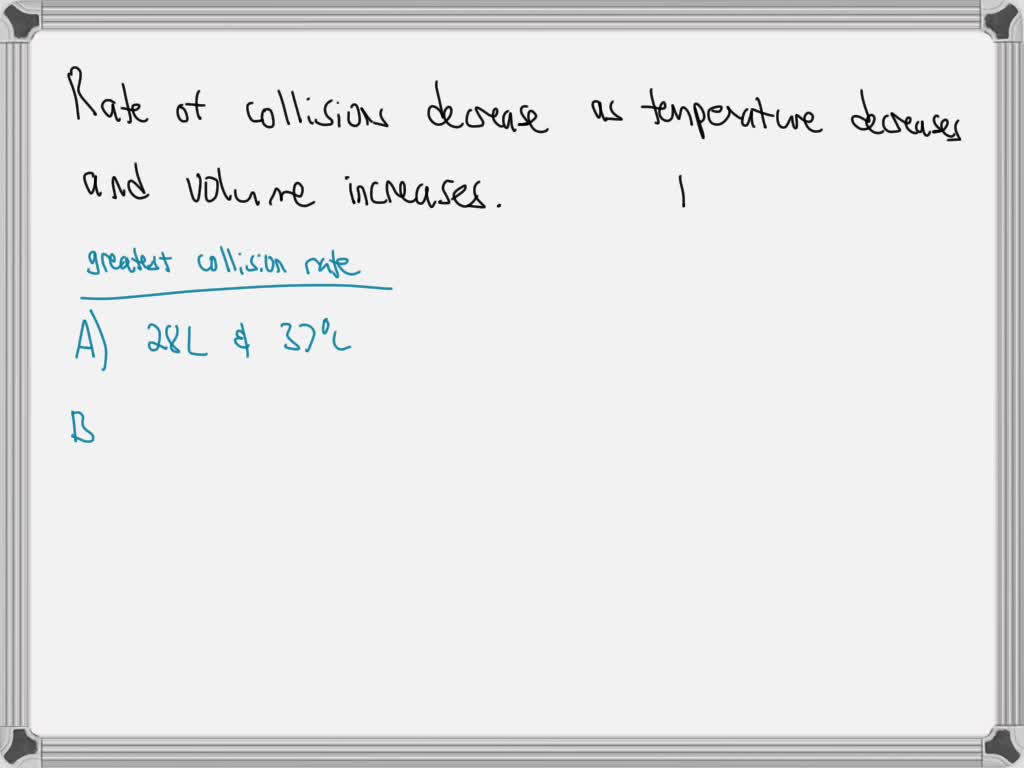 Rate of collisions decrease as temperature decreases
and volume increases. |
greatest collision rate
A) 28L & 37°C
B